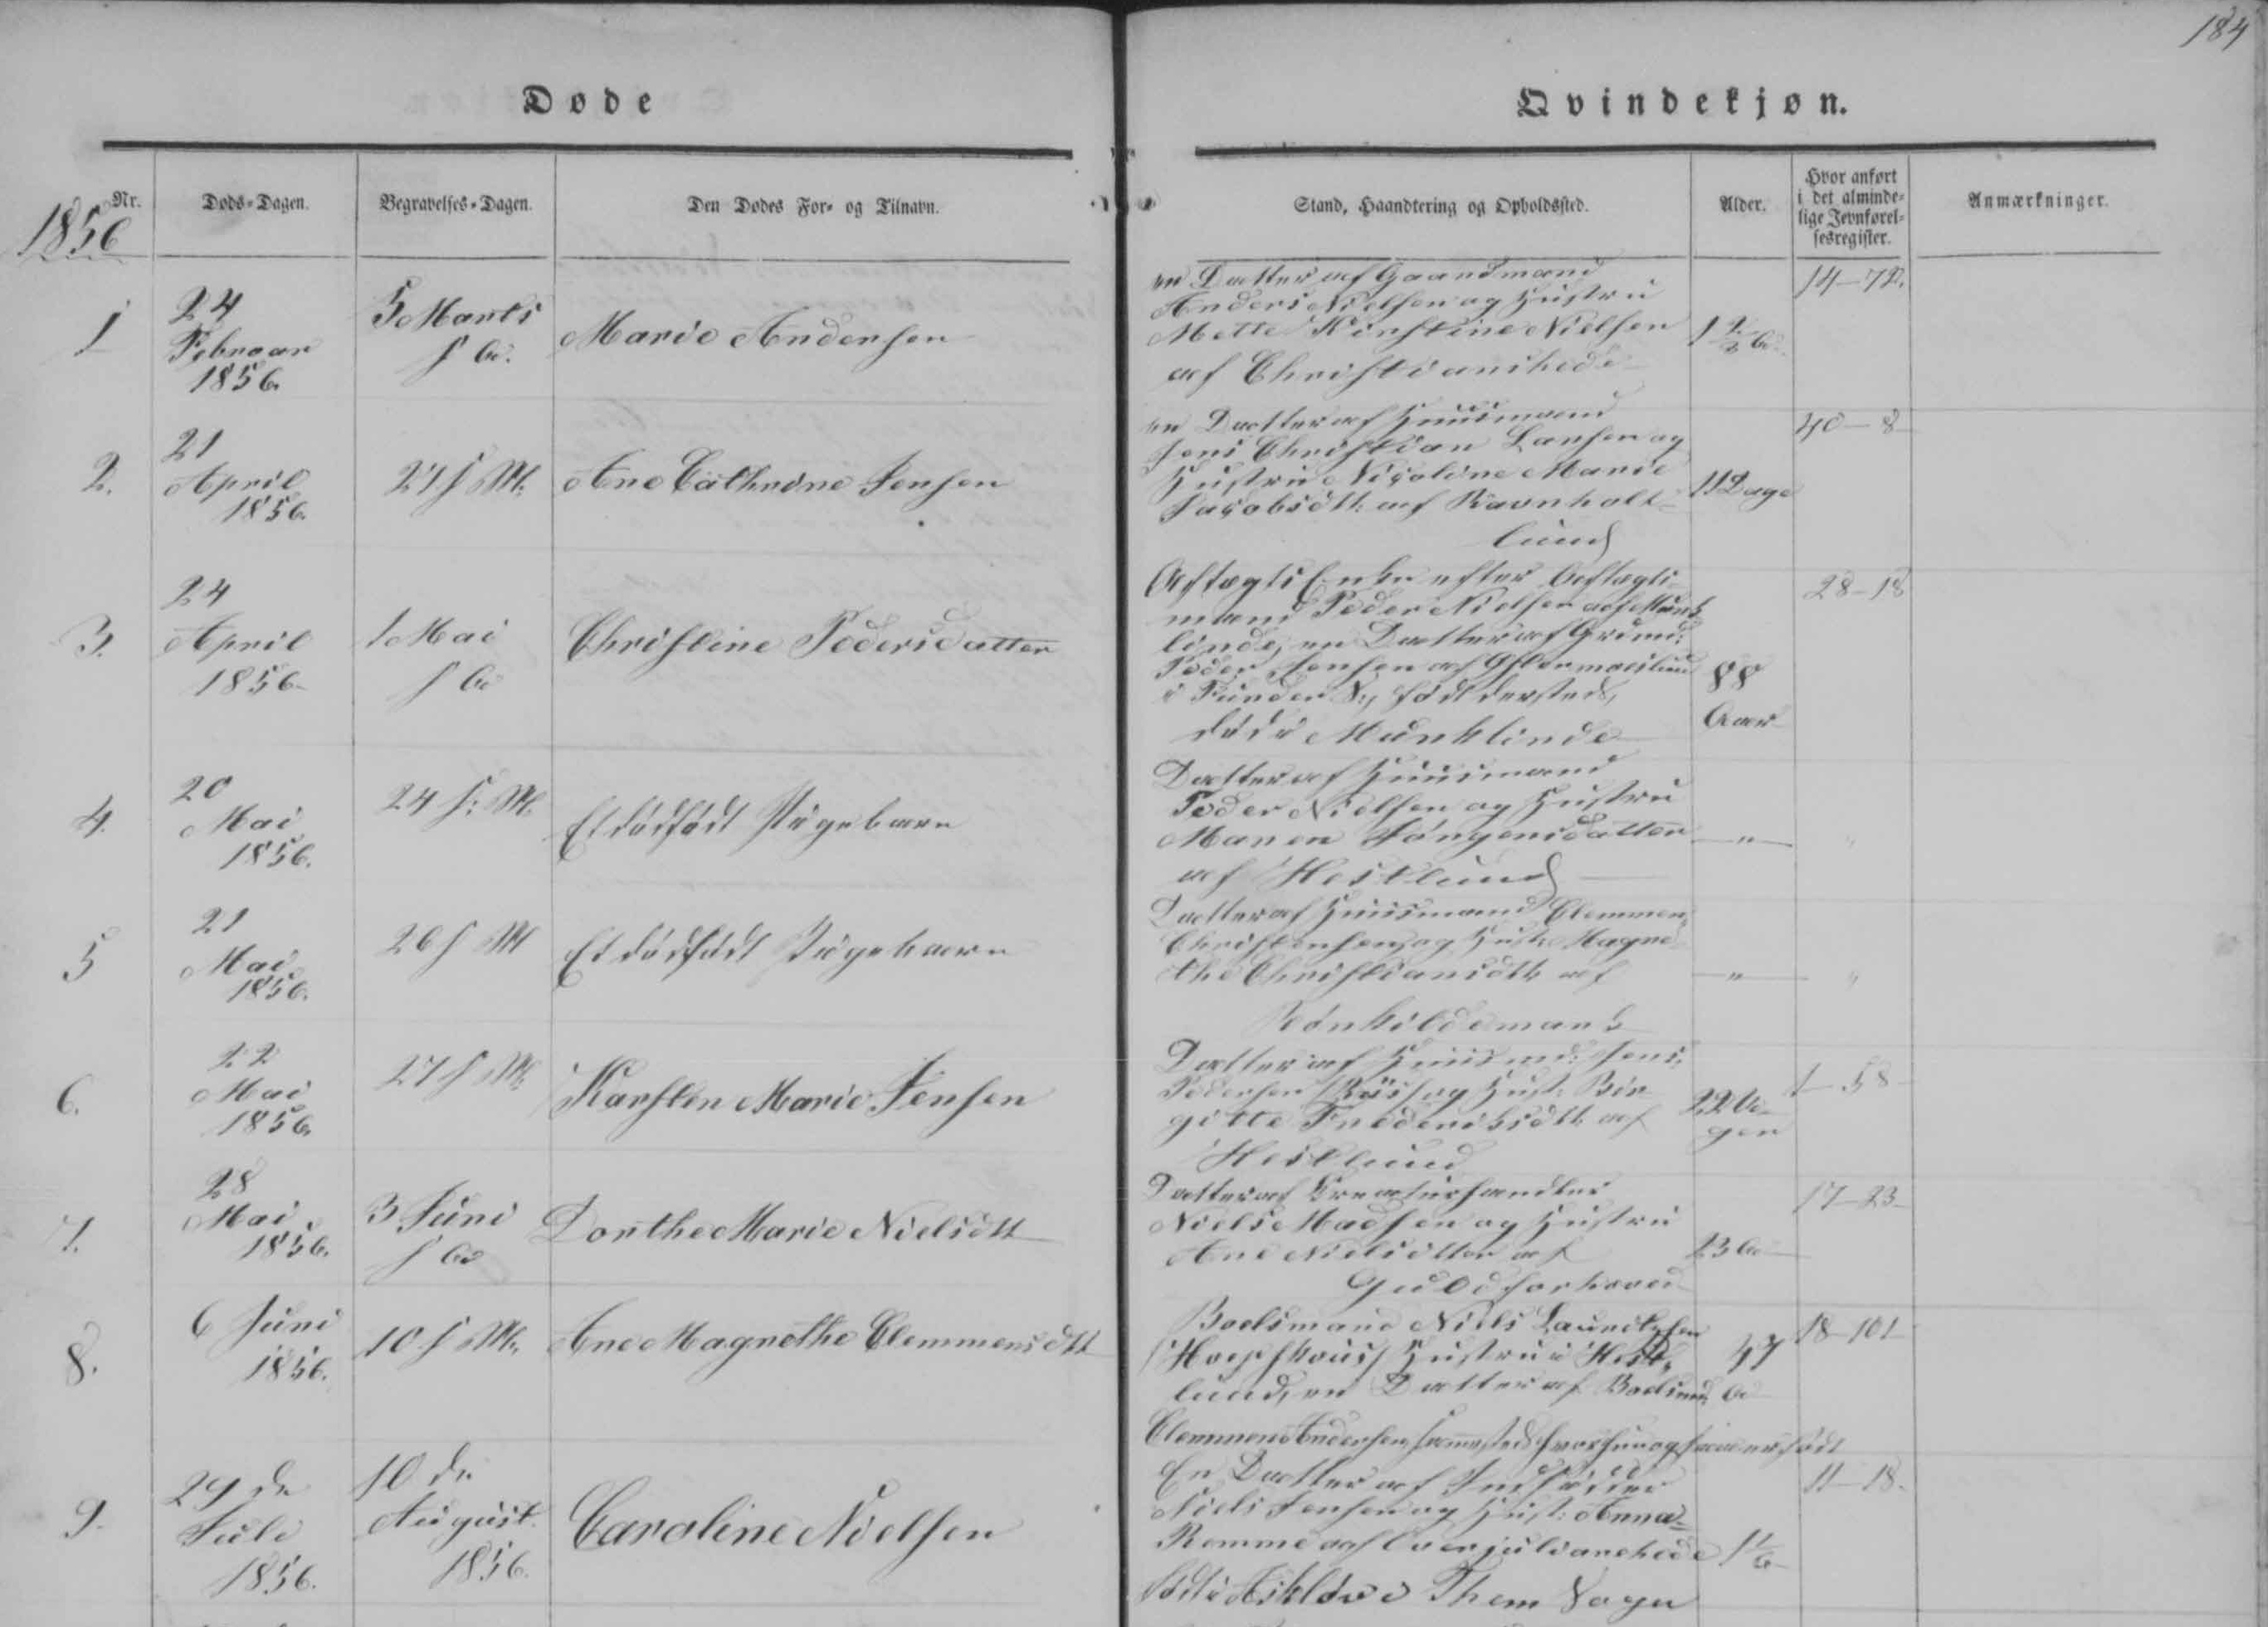 184
Døde
Qvindekjøn.
Nr.
Døds-Dagen.
Begravelses-Dagen.
Den Dødes For- og Tilnavn.
Stand, Haandtering og Opholdssted.
Alder.
Hvor anført
i det alminde-
lige Jevnførel-
sesregister.
Anmærkninger.
1856
1
24
Februar
1856.
5 Marts
s A.
Marie Andersen
en Datter af Gaardmand
Anders Nielsen og Hustru
Mette Kirstine Nielsen
af Christianshede
14-72.
2.
21
April
1856.
27 s M.
Ane Cathrine Jensen
en Datter af Huusmand
Jens Christian Larsen og
Hustru Nicoline Marie
Jacobsdtt: af Ravnholt-
lund
11 Dage
40-8
3.
24
April
1856
1 Mai
s A
Christine Pedersdatter
Aftægts Enke efter Aftægts-
mand Peder Nielsen af Munk
linde, en Datter af Grdmd:
Peder Jensen af
i Funder S:, født dersteds,
døde i Munklinde
88
Aar
28-18
4.
20
Mai
1856.
24 s: M.
Et dødfødt Pigebarn
Datter af Huusmand
Peder Nielsen og Hustru
Maren Jørgensdatter
af Hestlund
"
"
5
21
Mai
1856.
26 s M
Et dødfødt Pigebarn
Datter af Huusmand Clemmen
Christensen og Hust: Magre
the Christiansdtt: af
"
"
6.
22
Mai
1856.
27 s M.
Karsten Marie Jensen
Datter af Huusmd: Jens
Pedersen og Hust: Bir
gitte Frederiksdtt: af
Hestlund
22 U-
ger
1-58
7.
28
Mai
1856.
3 Juni
s A
Dorthe Marie Nielsdtt
Datter af Creaturhandler
Niels Madsen og Hustru
Ane Nielsdtter af
Guldforhoved
23 A
17-23
8.
6 Juni
1856.
10 s M.
Ane Magrethe Clemmensdtt
Boelsmand Niels Lauridsen
Hustru i Hest-
lund, en Datter af Boelsmd
Clemmen Andersen
47
A
18-101
9.
29 de
Juli
1856.
10 de
August
1856.
Caroline Nielsen
En Datter af Indsidder
Niels Jensen og Hust: Anna
Romme af Overjulianehede
født i Asklev i Them Sogn
11-18.